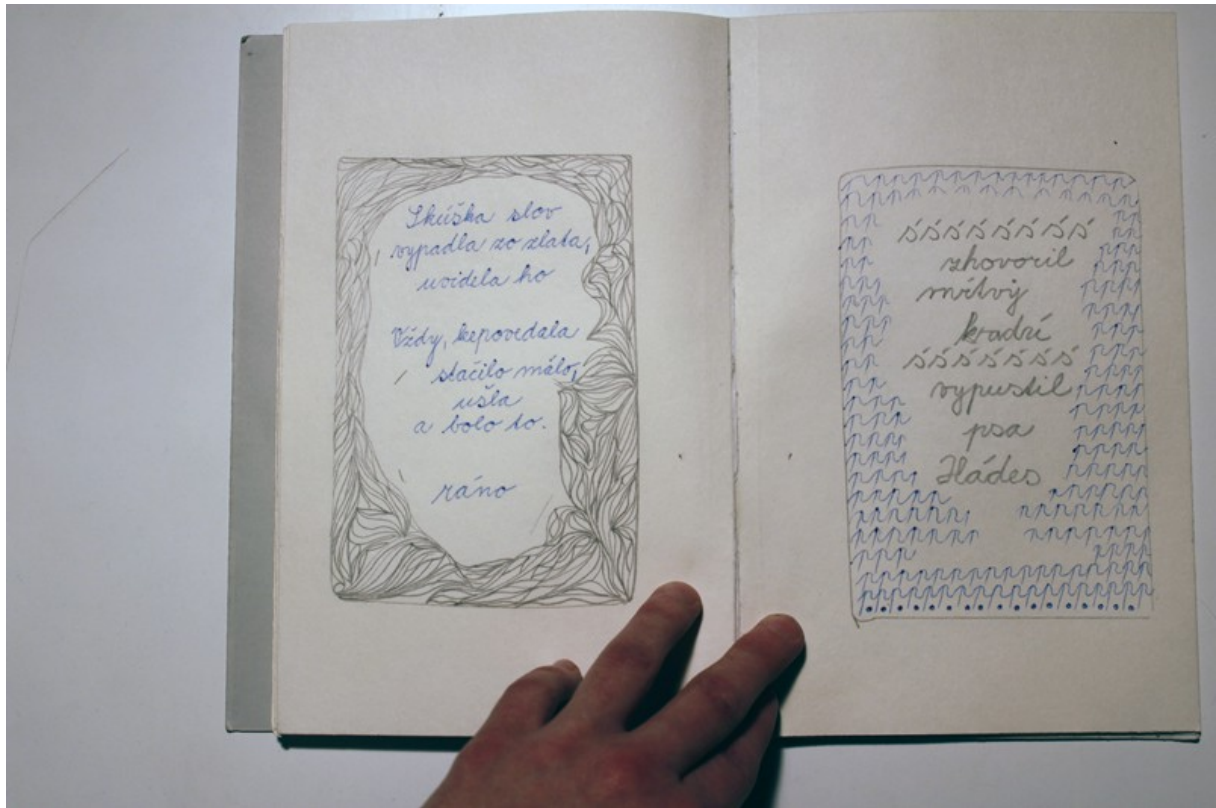 Skúška slov
vypadla zo zlata,
uvidela ho
Vždy, nepovedala
stačilo málo,
ušla
a bolo to.
ráno
śśśśśśśś
zhovoril
mŕtvý
kradzí
śśśśśśś
vypustil
psa
Hádes